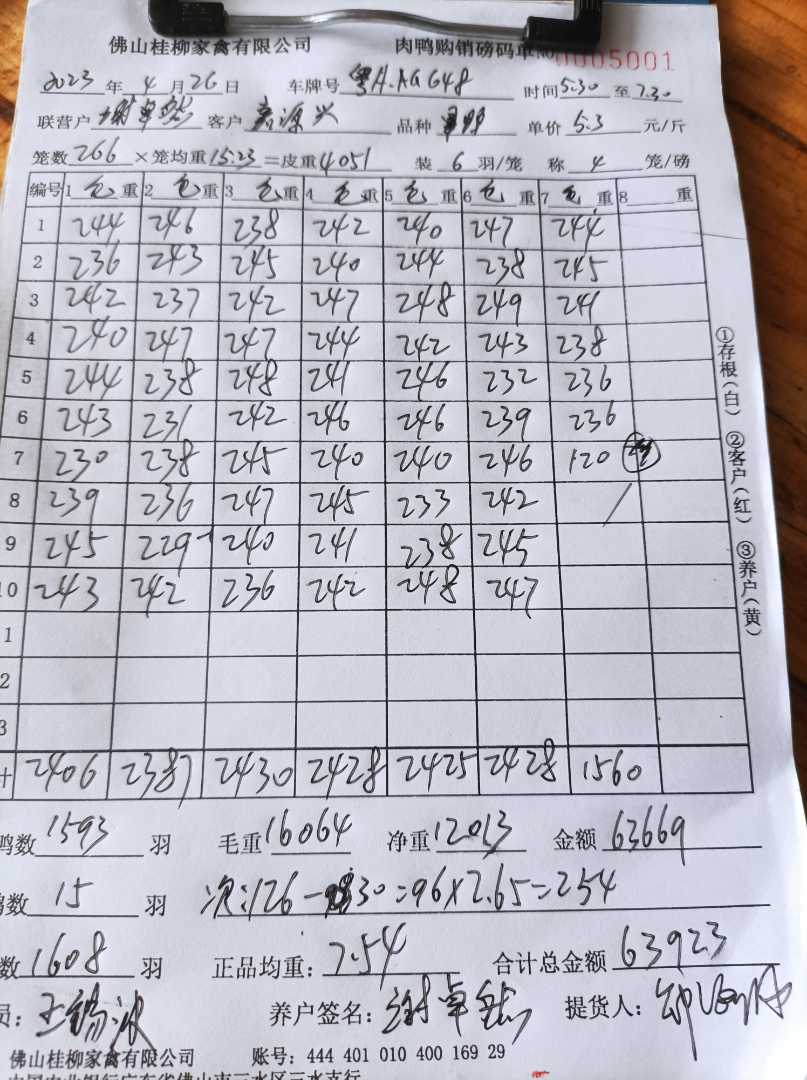 佛山桂柳家禽有限公司 肉鸭购销磅码单 0005001
2023年4月26日 车牌号 粤A.AG648 时间5:30至7.30
联营户 谢卓然 客户 源兴 品种 单价 5.3 元/斤
笼数266×笼均重15.23=皮重4051 装6羽/笼 称4笼/磅
编号 1毛重 2毛重 3毛重 4毛重 5毛重 6毛重 7毛重 8 重
1 244 246 238 242 240 247 244
2 236 243 245 240 244 238 245
3 242 237 242 247 248 249 241
4 240 247 247 244 242 243 238
5 244 238 248 241 246 232 236
6 243 231 242 246 246 239 236
7 230 238 245 240 240 246 120
8 239 236 247 245 233 242 /
9 245 229 240 241 238 245
10 243 242 236 242 248 247
1
2
3
2406 2387 2430 2428 2425 2428 1560
①存根(白) ②客户(红) ③养户(黄)
鸭数1593羽 毛重16064 净重12013 金额63669
数15羽 次:126-30=96×2.65=254
数1608羽 正品均重:7.54 合计总金额63923
员:王锡波 养户签名:谢卓然 提货人:
佛山桂柳家禽有限公司 账号:444 401 010 400 169 29
中国农业银行广东省佛山市三水区三水支行